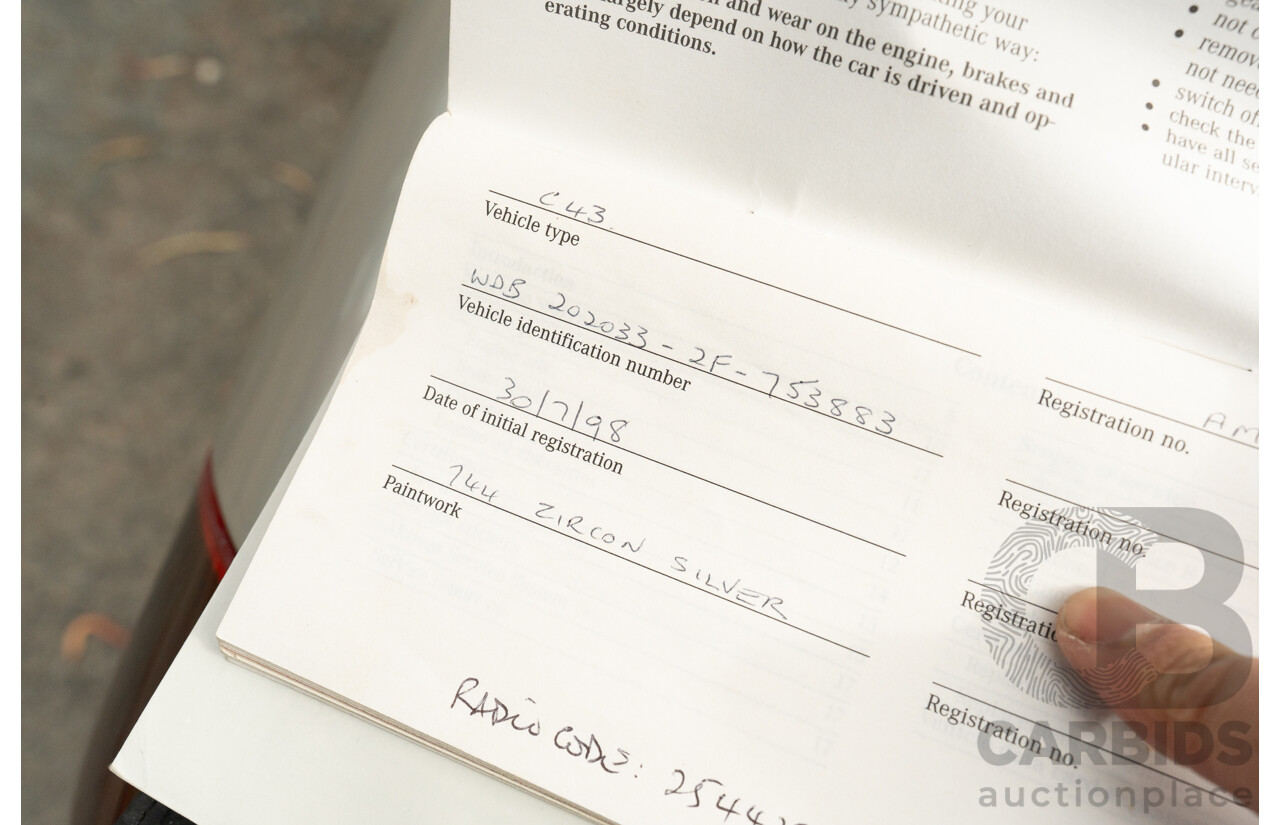 your
sympathetic way:
and wear on the engine, brakes and
largely depend on how the car is driven and op-
erating conditions.
• not
• remov
not nee
• switch of
• check the
• have all se
ular interv
C43
Vehicle type
WDB 202033-2F-753883
Vehicle identification number
30/7/98
Date of initial registration
744 ZIRCON SILVER
Paintwork
AM
Registration no.
Registration no.
Registratio
Registration no.
RADIO CODE: 2544
CB
CARBIDS
auctionplace